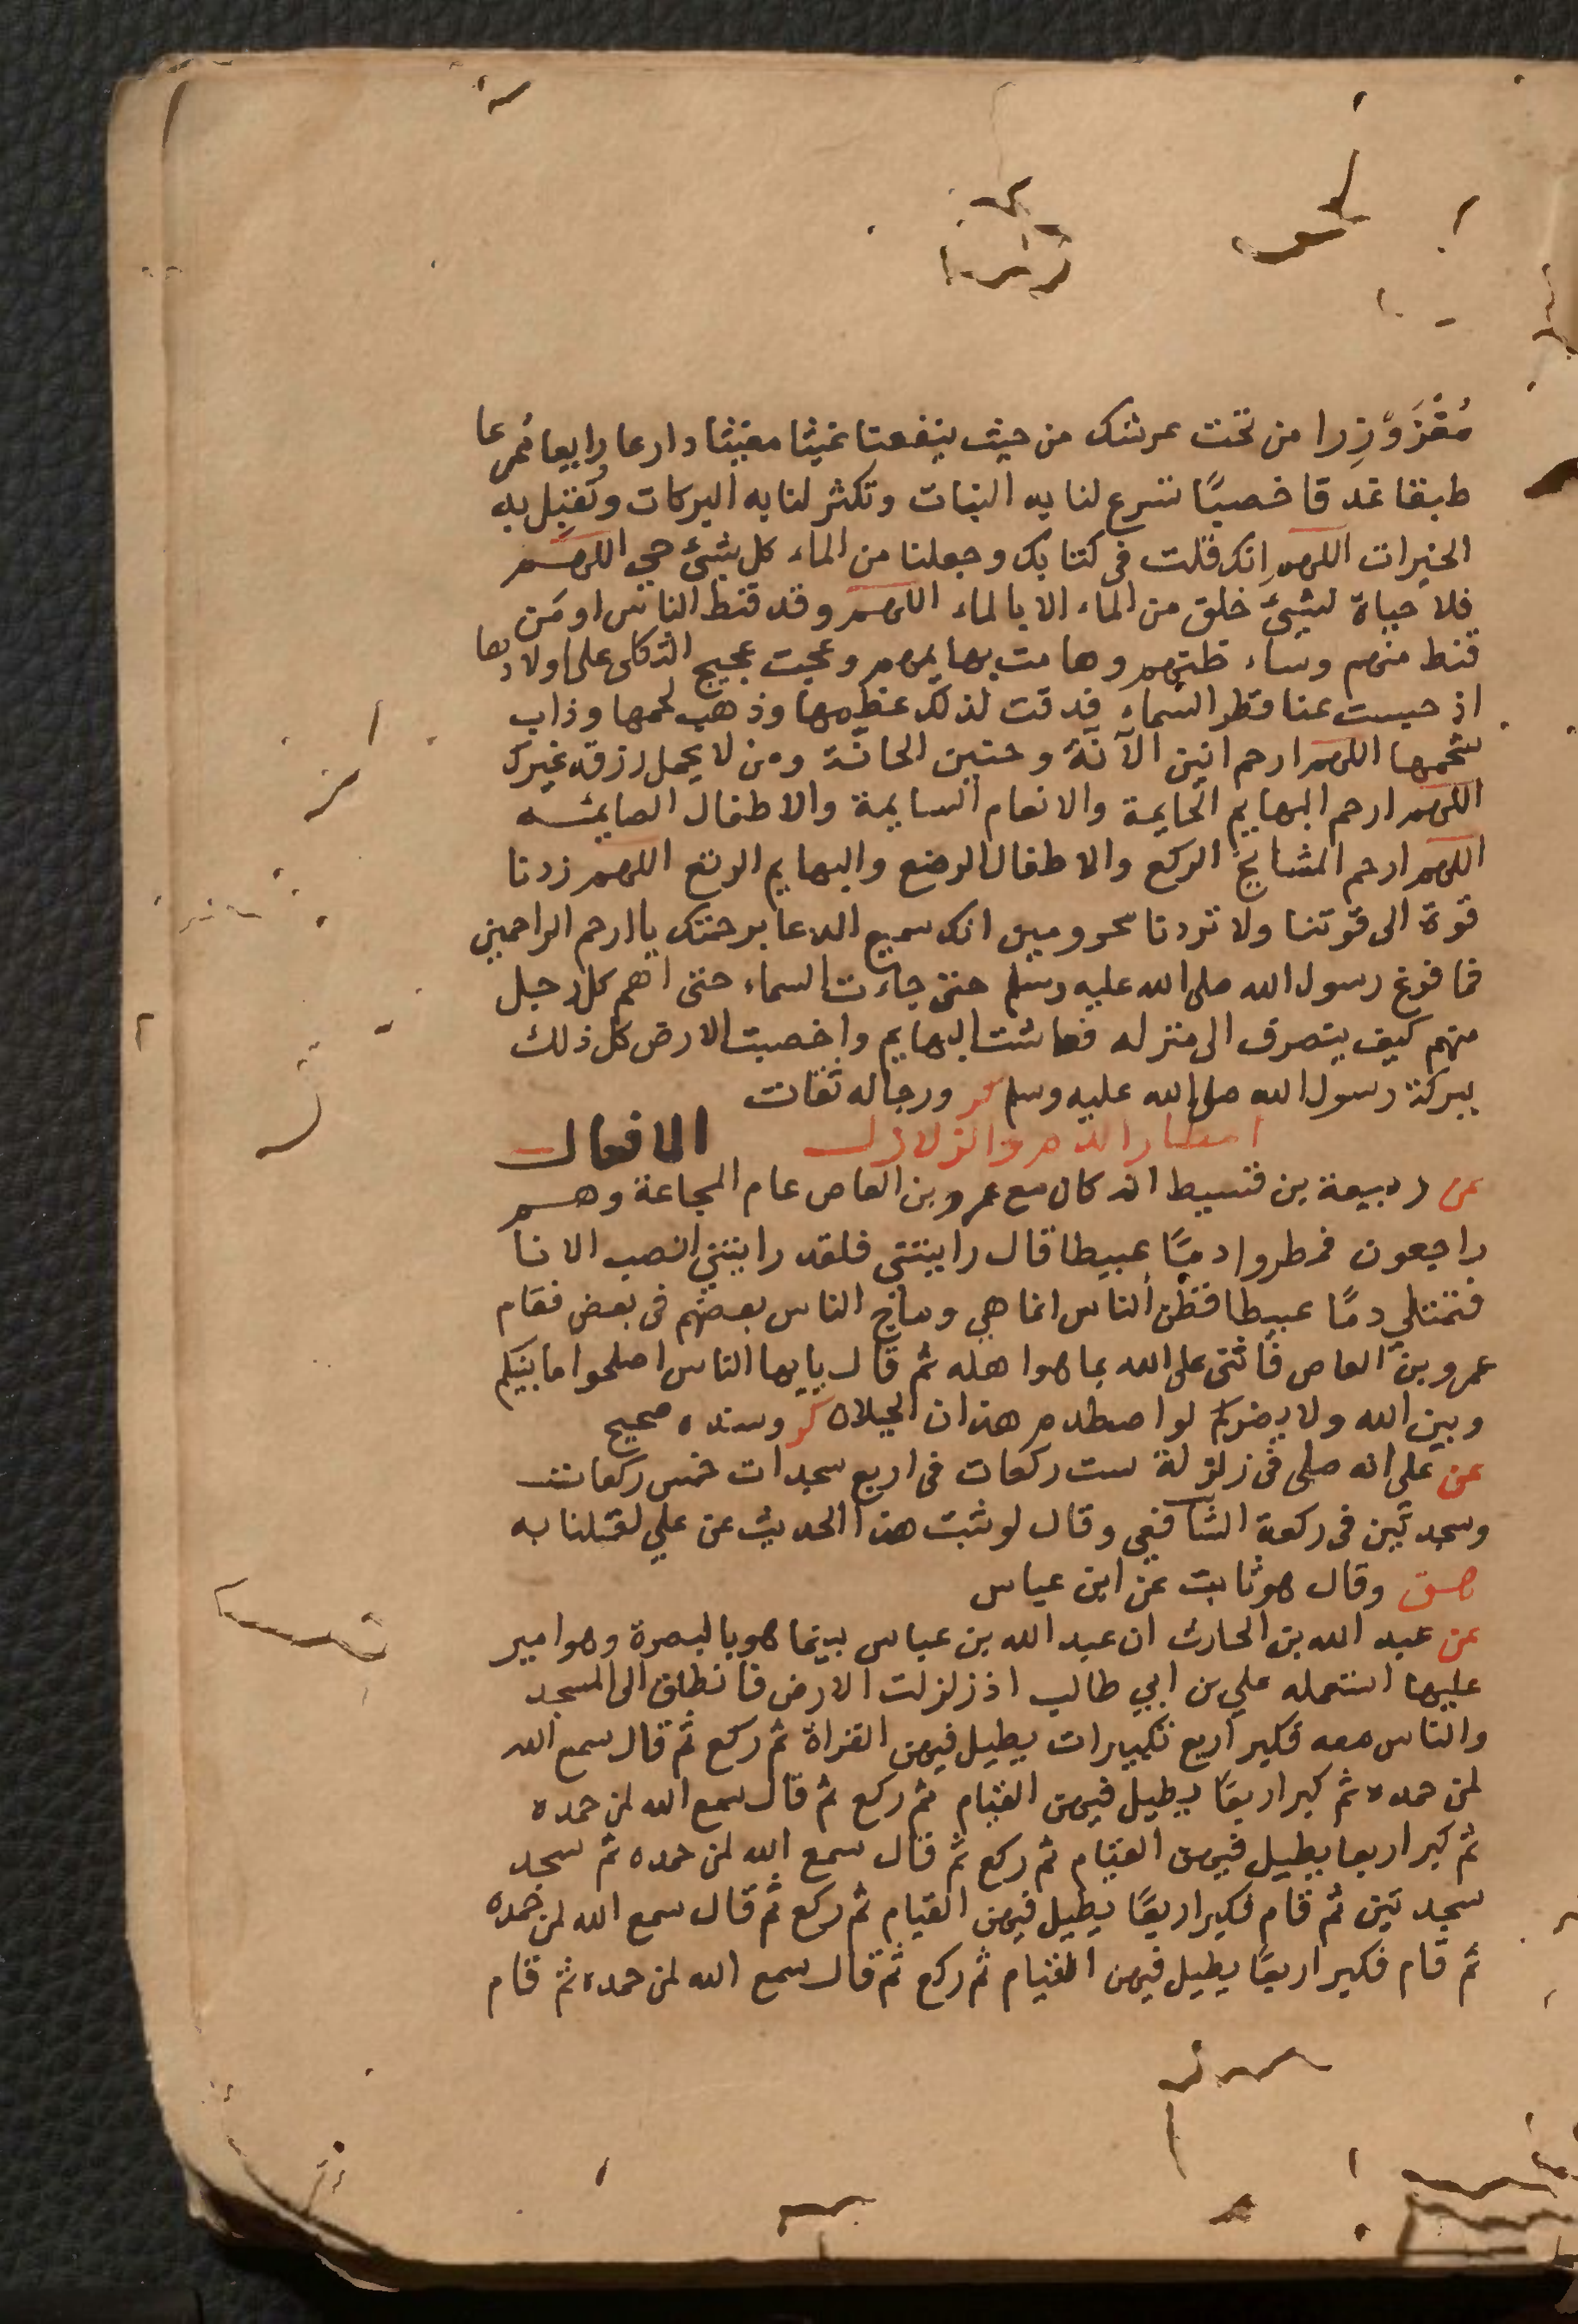 مُغْزَوْزِرا من تحت عرشك من حيث ينفعنا غيثا مغيثا دارعا رايعا مُمرعا
طبقا غدقا خصبًا تسرع لنا به النبات وتكثر لنا به البركات وتُقبِل به
الخيرات اللهم انك قلت فى كتابك وجعلنا من الماء كل شيئ حي اللهم
فلا حياة لشيئ خلق من الماء الا بالماء اللهم وقد قنط الناس او مَن
قنط منهم وساء ظنهم وهامت بهايمهم وعجت عجيج الثكلى على اولادها
اذ حبست عنا قطر السماء فدقت لذلك عظمها وذهب لحمها وذاب
شحمها اللهم ارحم انين الآنّة وحنين الحانّة ومن لا يحمل رزقه غيرك
اللهم ارحم البهايم الحايمة والانعام السايمة والاطفال الصايمه
اللهم ارحم المشايخ الركع والاطفال الرضع والبهايم الرتع اللهم زدنا
قوة الى قوتنا ولا تردنا محرومين انك سميع الدعا برحمتك يا ارحم الراحمين
فما فرغ رسول الله صلى الله عليه وسلم حتى جاءت السماء حتى اهم كل رجل
منهم كيف ينصرف الى منزله فعاشت البهايم واخصبت الارض كل ذلك
ببركة رسول الله صلى الله عليه وسلم كر ورجاله ثقات
امطار الدم والزلازل الافعال
عن ربيعة بن قسيط انه كان مع عمرو بن العاص عام المجاعة وهم
راجعون فمطروا دمًا عبيطا قال رايتني فلقد رايتني انصب الانا
فتمتلي دمًا عبيطا فظن الناس انما هي وماج الناس بعضهم فى بعض فقام
عمرو بن العاص فأثنى على الله بما هوا هله ثم قال يايها الناس اصلحوا ما بينكم
وبين الله ولا يضركم لوا صطدم هذان الجبلان كر وسنده صحيح
عن على انه صلى فى زلزلة ست ركعات فى اربع سجدات خمس ركعات
وسجدتين فى ركعة الشافعي وقال لو ثبت هذا الحديث عن علي لقلنا به
هق وقال هو ثابت عن ابن عباس
عن عبد الله بن الحارث ان عبد الله بن عباس بينما هو بالبصرة وهو امير
عليها استعمله علي بن ابي طالب اذ زلزلت الارض فانطلق الى المسجد
والناس معه فكبر اربع تكبيرات يطيل فيهن القراة ثم ركع ثم قال سمع الله
لمن حمده ثم كبر اربعًا يطيل فيهن القيام ثم ركع ثم قال سمع الله لمن حمده
ثم كبر اربعا يطيل فيهن القيام ثم ركع ثم قال سمع الله لمن حمده ثم سجد
سجدتين ثم قام فكبر اربعًا يطيل فيهن القيام ثم ركع ثم قال سمع الله لمن حمده
ثم قام فكبر اربعًا يطيل فيهن القيام ثم ركع ثم قال سمع الله لمن حمده ثم قام